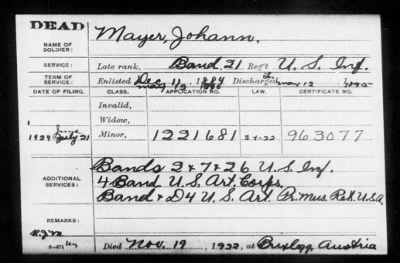 DEAD
NAME OF SOLDIER: Mayer, Johann.
SERVICE: Late rank, Band 21 Reg't U. S. Inf.
TERM OF SERVICE: Enlisted Dec 11, 1884 Discharged
DATE OF FILING. CLASS. APPLICATION NO. LAW. CERTIFICATE NO.
Invalid,
Widow,
1924 July 21 Minor, 1221681 963077
ADDITIONAL SERVICES: Bands 2 & 7 & 26 U. S. Inf.
4 Band U. S. Art. Corps.
Band & D4 U. S. Art. Pr. Mus. Ret. U.S.A
REMARKS:
Died Nov. 19, 1932, at Brixlegg, Austria